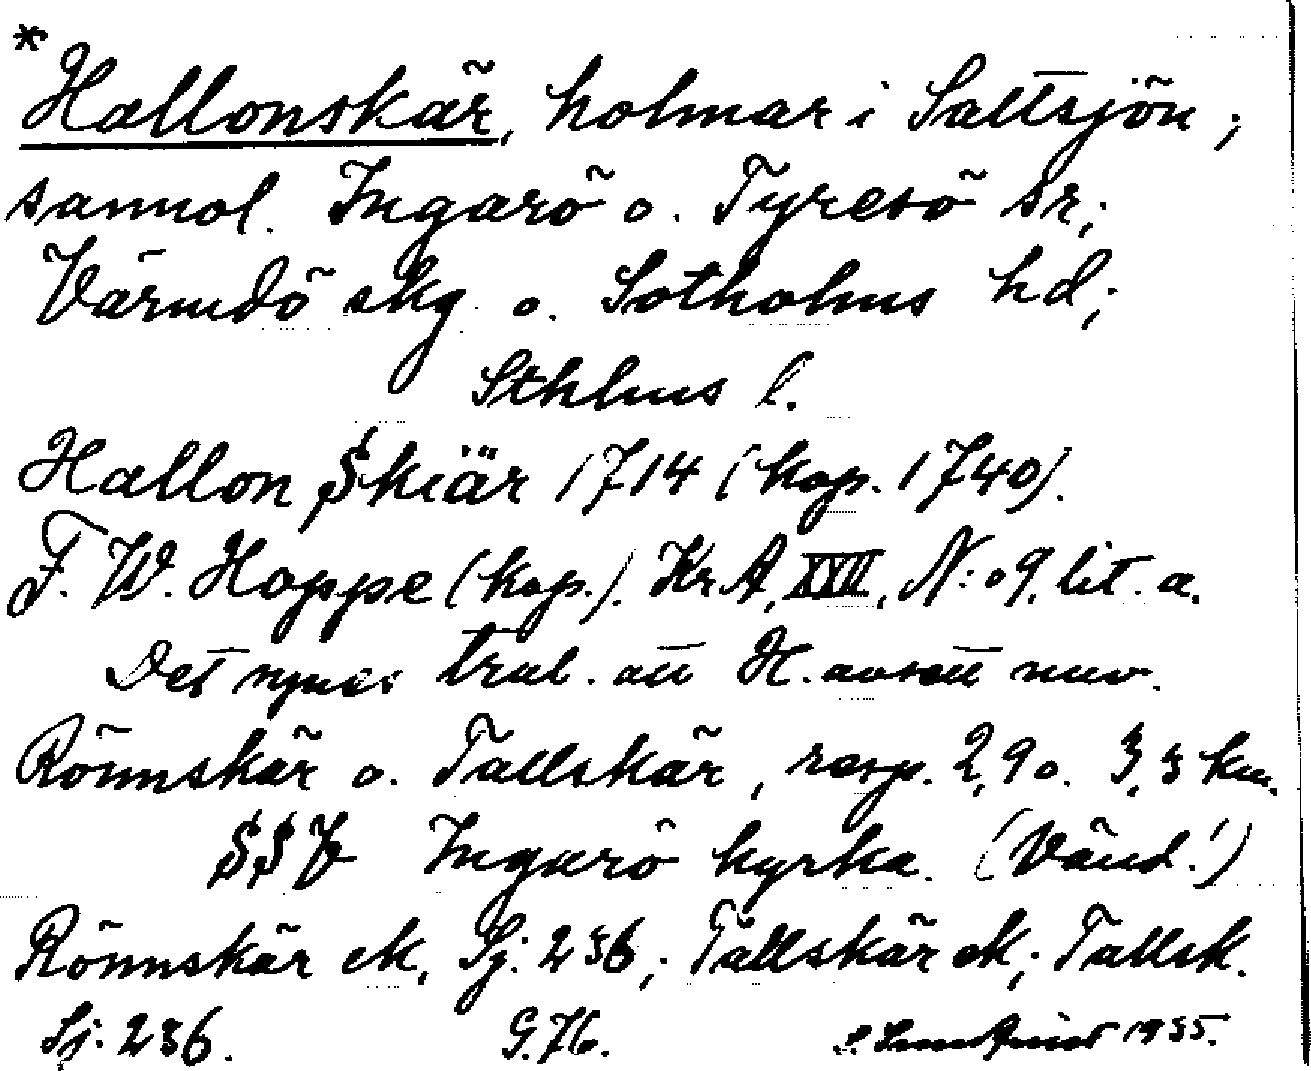 * Hallonskär, holmar i Saltsjön;
sannol. Ingarö o. Tyresö sr;
Värmdö skg o. Sotholms hd;
Sthlms l.
Hallon Skiär 1714 (kop. 1740).
F. W. Hoppe (kop.). Kr A, XVII, N:o 9. lit. a.
Det synes trol. att H. avsett nuv.
Rönnskär o. Tallskär, resp. 2,9 o. 3,3 km.
SSV Ingarö kyrka. (Vänd!)
Rönnskär ek, Sj. 236; Tallskär ek; Tallsk.
Sj. 236. G.76. 1935.